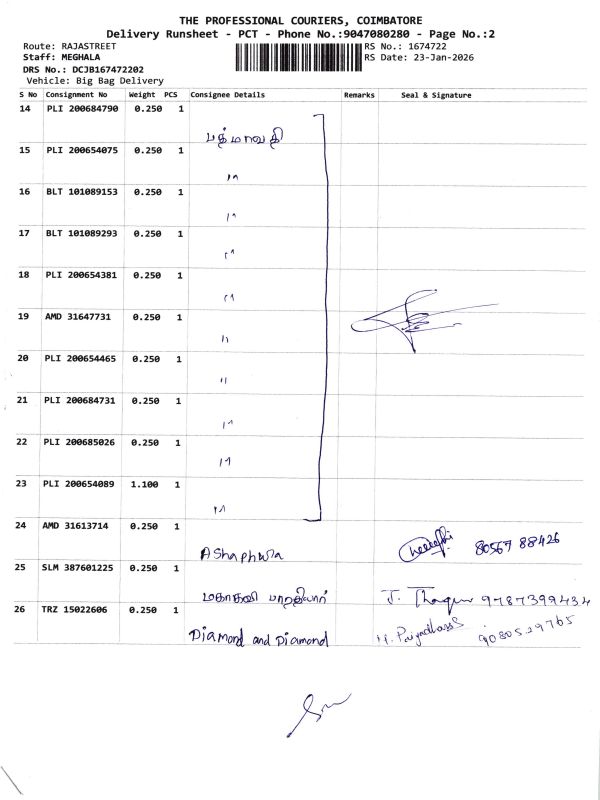 THE PROFESSIONAL COURIERS, COIMBATORE
Delivery Runsheet - PCT - Phone No.:9047080280 - Page No.:2
Route: RAJASTREET RS No.: 1674722
Staff: MEGHALA RS Date: 23-Jan-2026
DRS No.: DCJB167472202
Vehicle: Big Bag Delivery
S No Consignment No Weight PCS Consignee Details Remarks Seal & Signature
14 PLI 200684790 0.250 1
பத்மாவதி
15 PLI 200654075 0.250 1
"
16 BLT 101089153 0.250 1
"
17 BLT 101089293 0.250 1
"
18 PLI 200654381 0.250 1
"
19 AMD 31647731 0.250 1
"
20 PLI 200654465 0.250 1
"
21 PLI 200684731 0.250 1
"
22 PLI 200685026 0.250 1
"
23 PLI 200654089 1.100 1
"
24 AMD 31613714 0.250 1
80567 88426
25 SLM 387601225 0.250 1
மகாகவி பாரதியார் J. 9787399434
26 TRZ 15022606 0.250 1
Diamond and Diamond 9080529765